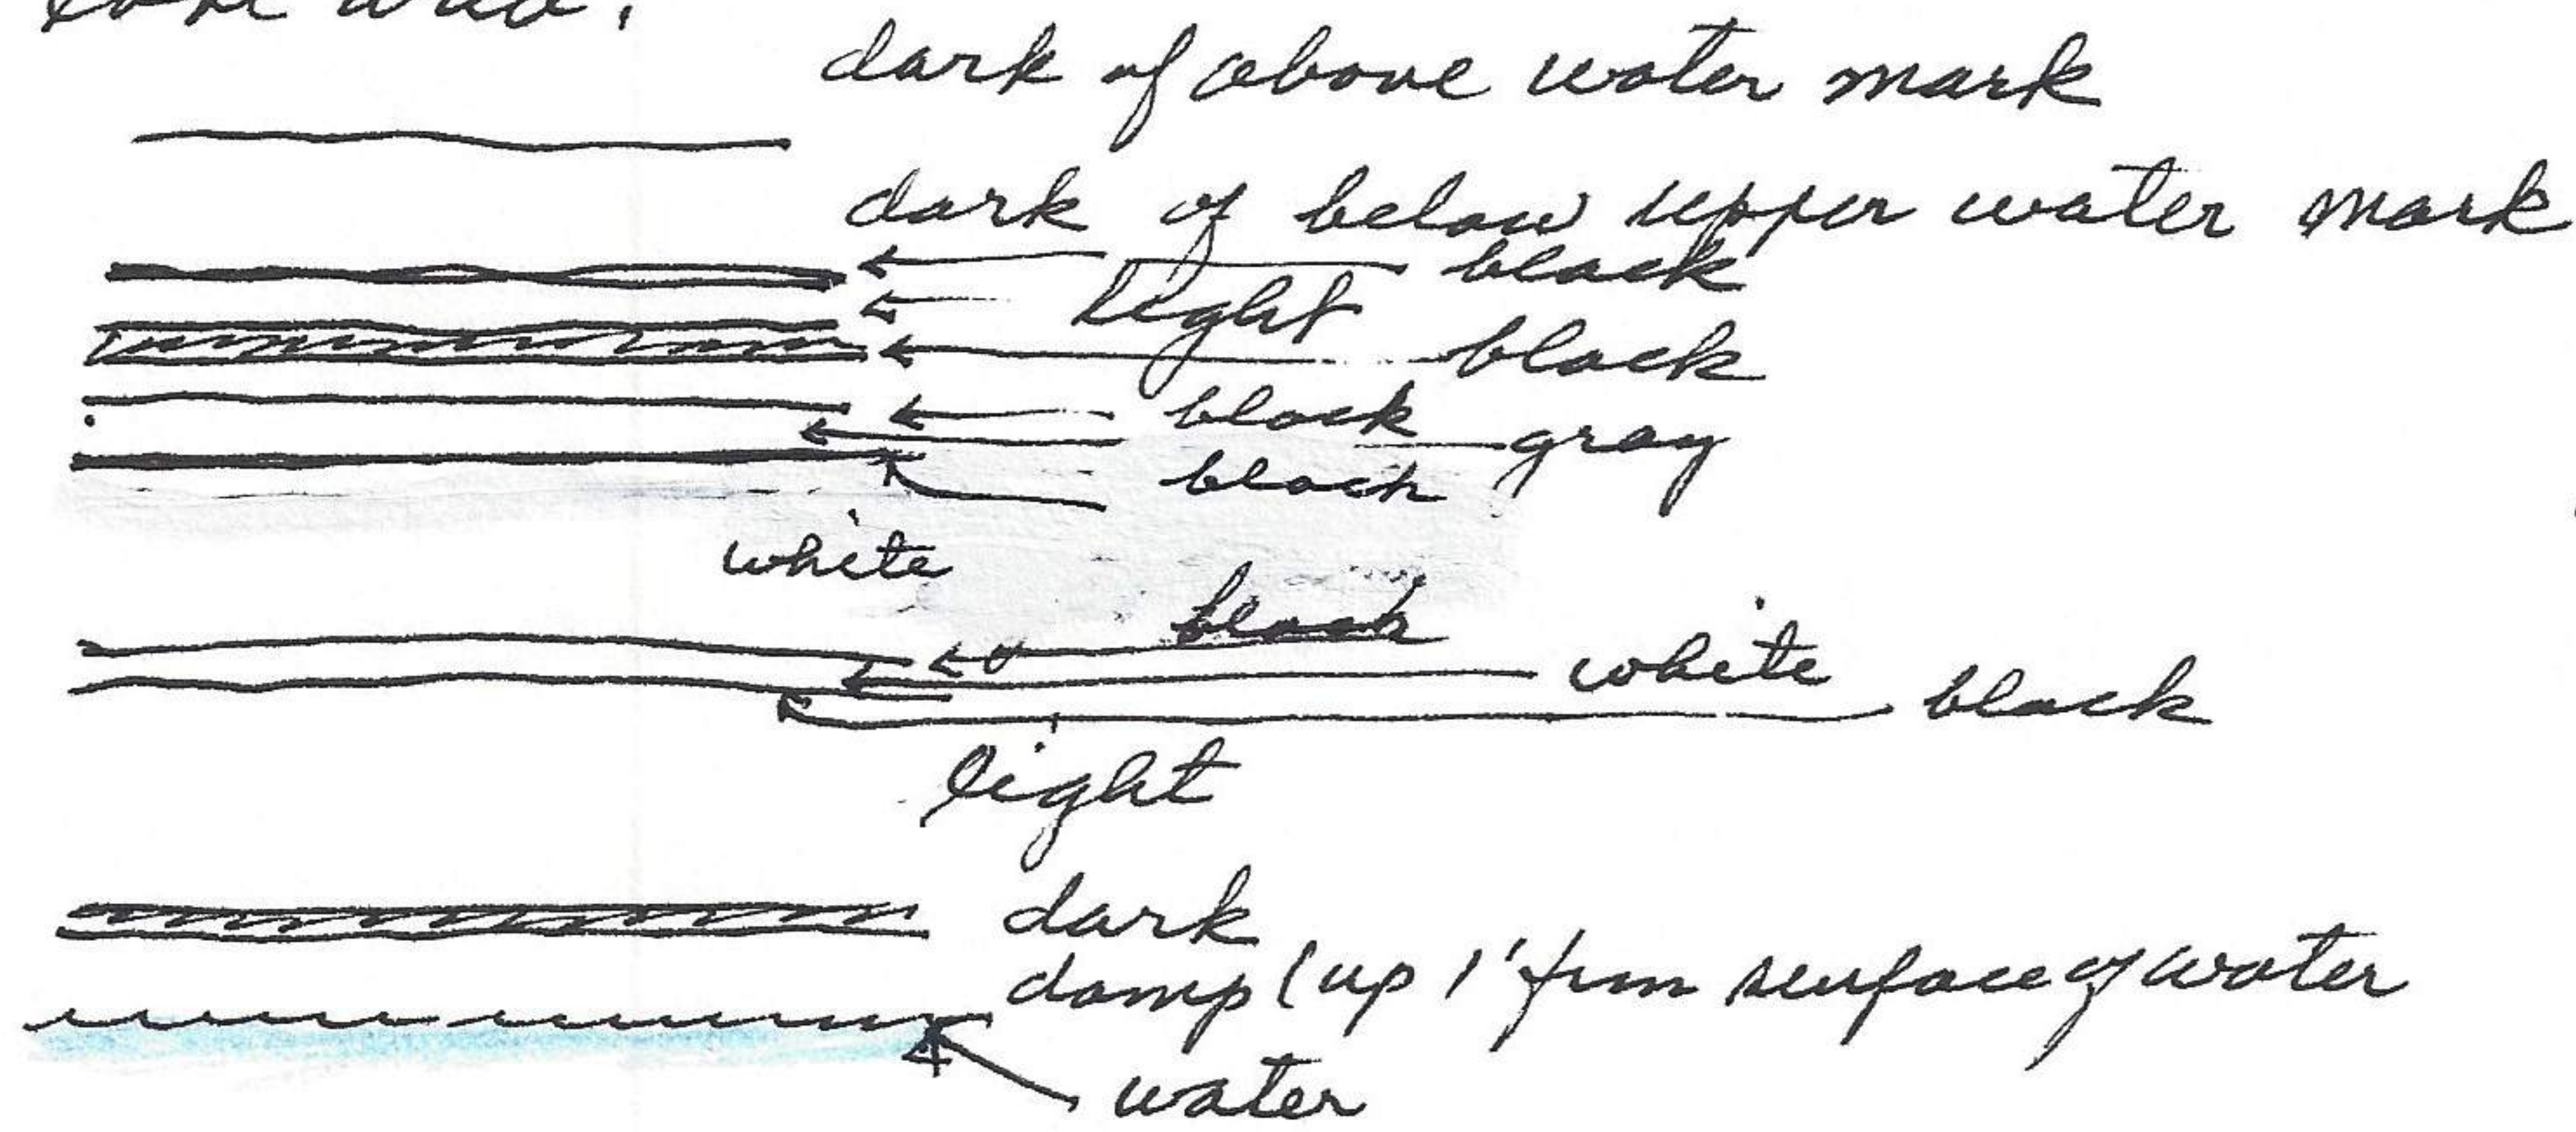 dark of above water mark
dark of below upper water mark
black
light
black
black
gray
black
white
black
white
black
light
dark
damp (up 1' from surface of water
water